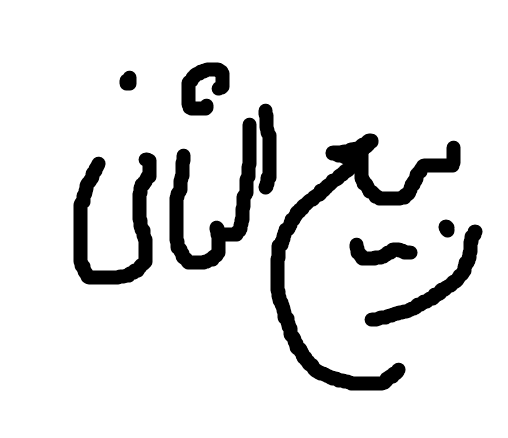 ربيع الثان